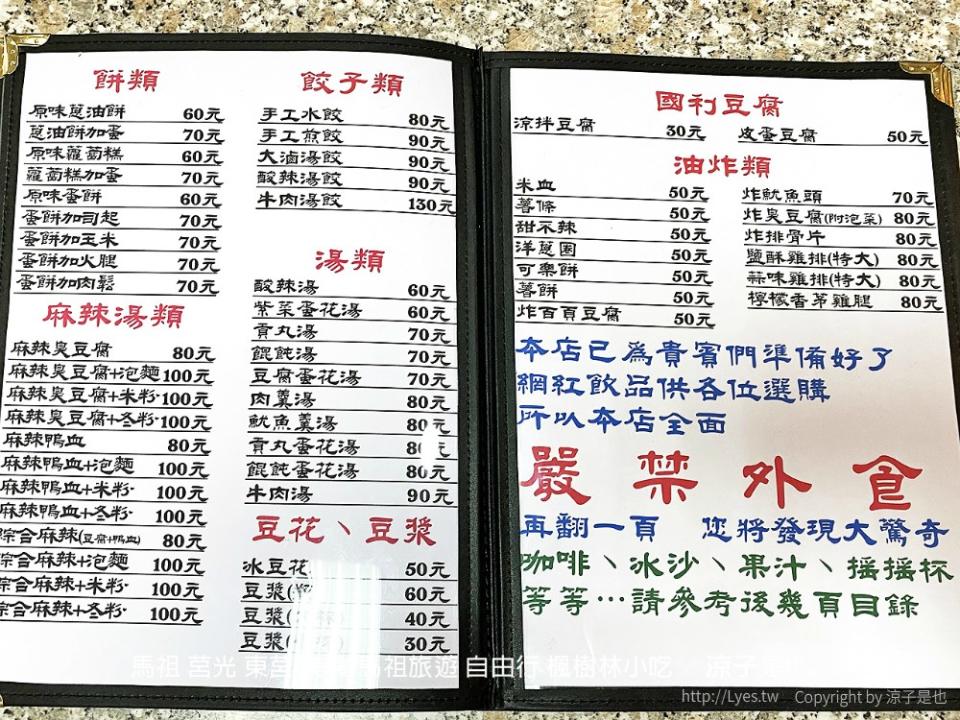 餅類
原味蔥油餅 60元
蔥油餅加蛋 70元
原味蘿蔔糕 60元
蘿蔔糕加蛋 70元
原味蛋餅 60元
蛋餅加司起 70元
蛋餅加玉米 70元
蛋餅加火腿 70元
蛋餅加肉鬆 70元
麻辣湯類
麻辣臭豆腐 80元
麻辣臭豆腐+泡麵 100元
麻辣臭豆腐+米粉 100元
麻辣臭豆腐+冬粉 100元
麻辣鴨血 80元
麻辣鴨血+泡麵 100元
麻辣鴨血+米粉 100元
麻辣鴨血+冬粉 100元
綜合麻辣(豆腐+鴨血) 80元
綜合麻辣+泡麵 100元
綜合麻辣+米粉 100元
綜合麻辣+冬粉 100元
餃子類
手工水餃 80元
手工煎餃 90元
大滷湯餃 90元
酸辣湯餃 90元
牛肉湯餃 130元
湯類
酸辣湯 60元
紫菜蛋花湯 60元
貢丸湯 70元
餛飩湯 70元
豆腐蛋花湯 70元
肉羹湯 80元
魷魚羹湯 80元
貢丸蛋花湯 80元
餛飩蛋花湯 80元
牛肉湯 90元
豆花、豆漿
冰豆花 50元
豆漿( 60元
豆漿( 40元
豆漿( 30元
國利豆腐
涼拌豆腐 30元 皮蛋豆腐 50元
油炸類
米血 50元
薯條 50元
甜不辣 50元
洋蔥圈 50元
可樂餅 50元
薯餅 50元
炸百頁豆腐 50元
炸魷魚頭 70元
炸臭豆腐(附泡菜) 80元
炸排骨片 80元
鹽酥雞排(特大) 80元
蒜味雞排(特大) 80元
檸檬香茅雞腿 80元
本店已為貴賓們準備好了
網紅飲品供各位選購
所以本店全面
嚴禁外食
再翻一頁 您將發現大驚奇
咖啡、冰沙、果汁、搖搖杯
等等…請參考後幾頁目錄
馬祖 莒光 東莒 馬祖旅遊 自由行 楓樹林小吃 涼子是也
http://Lyes.tw Copyright by 涼子是也